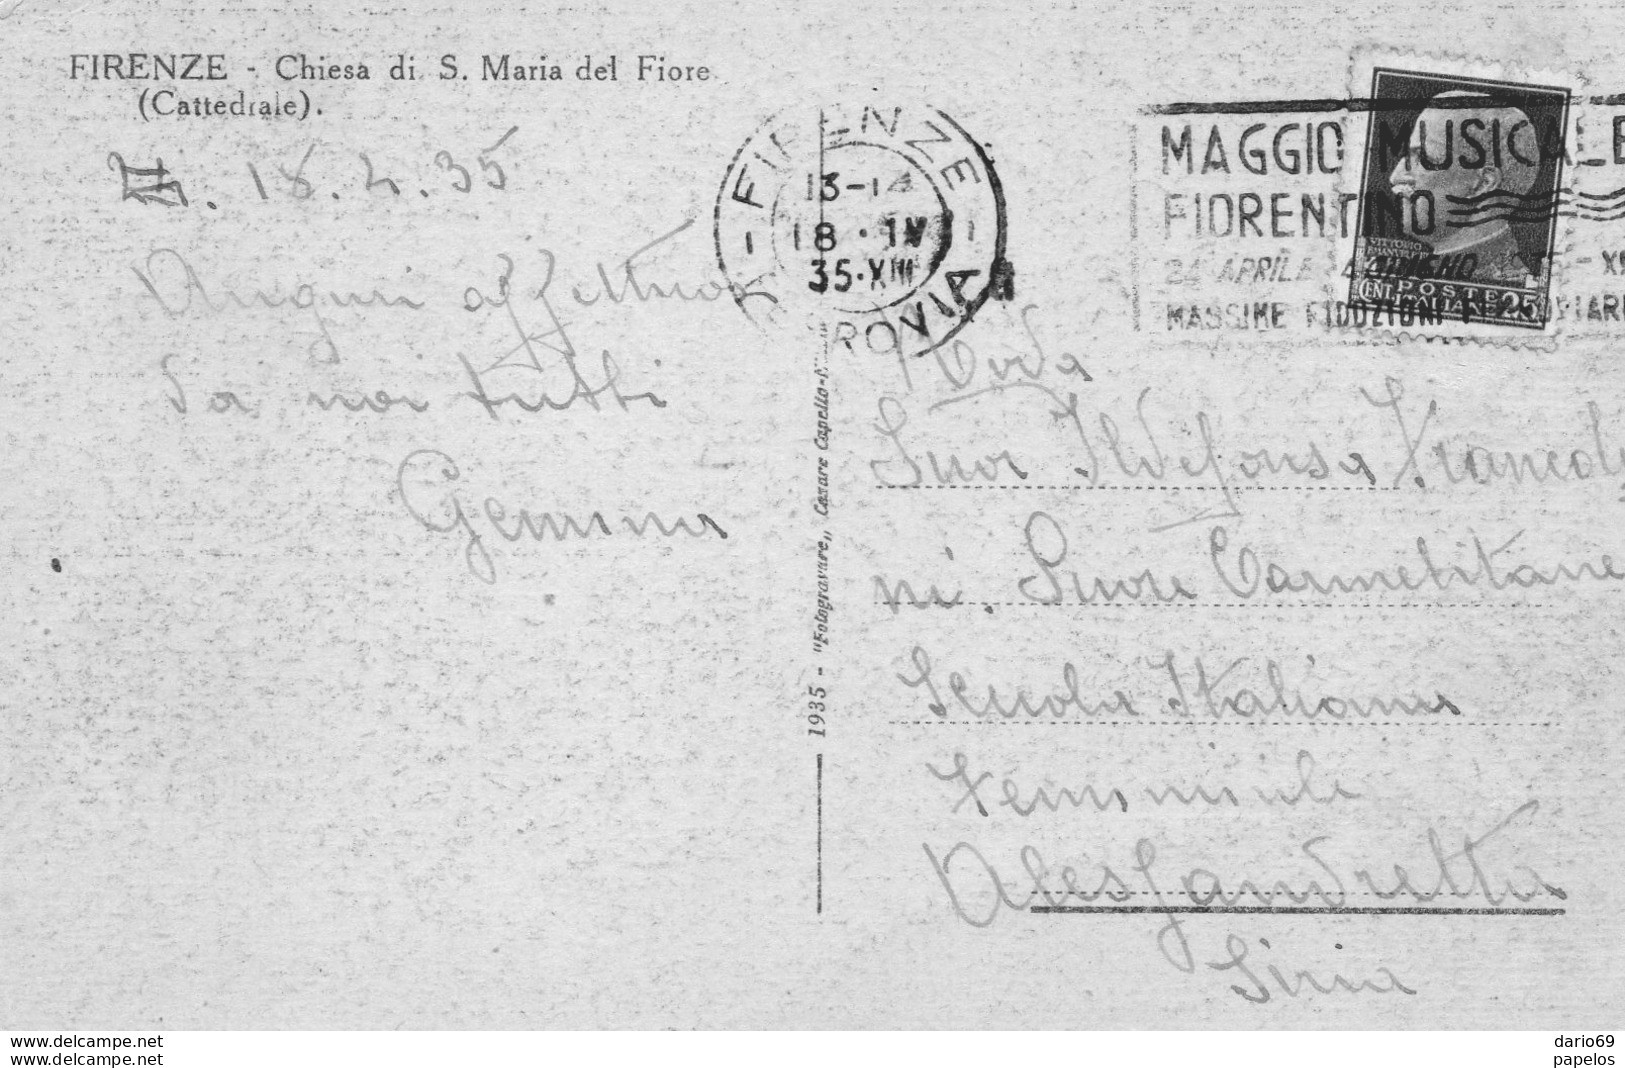 FIRENZE - Chiesa di S. Maria del Fiore
(Cattedrale).
18.4.35
Auguri affettuosi
da noi tutti
Gemma
FIRENZE
13-14
18·IV
35·XIII
FERROVIA
MAGGIO MUSICALE
FIORENTINO
24 APRILE GIUGNO
MASSIME RIDUZIONI FERROVIARI
VITTORIO
EMANUELE
POSTE
ITALIANE
CENT. 25
1935 - "Fotogravure" Cesare Capello-M
Suor Ildefonsa Francoli
ni. Suore Carmelitane
Scuola Italiana
Femminile
Alessandretta
Siria
www.delcampe.net
www.delcampe.net
dario69
papelos